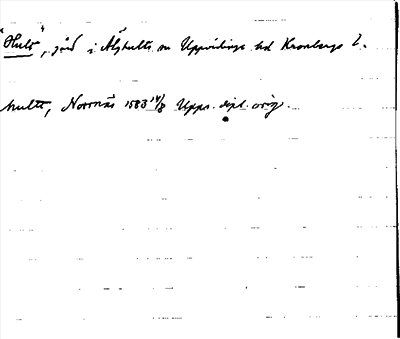 "Hult", gård i Älghults sn Uppvidinge hd Kronobergs l.
hullt, Norrnäs 1583 14/8 Upps. dipl. orig.